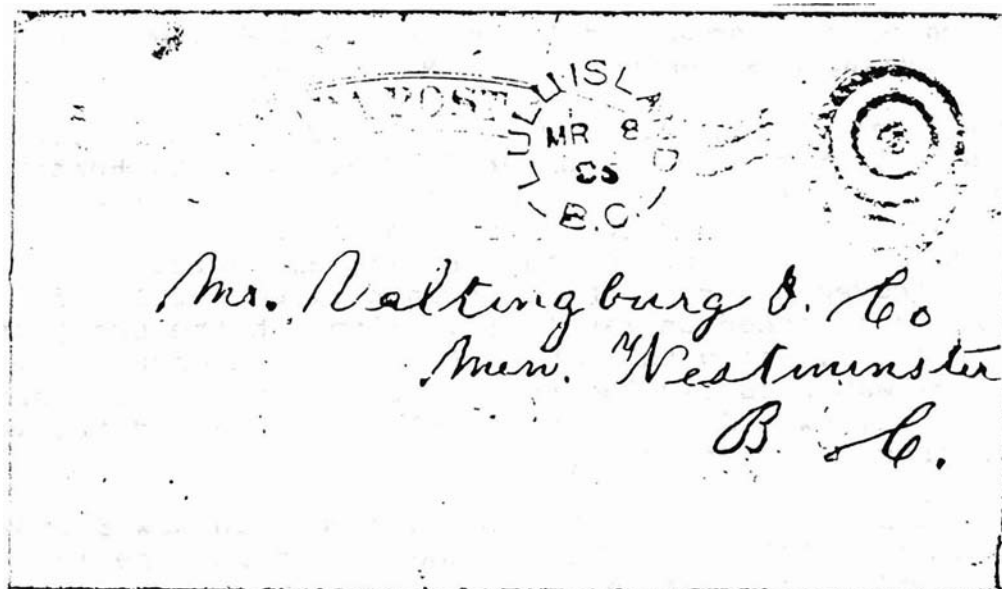 POST
LULU ISLAND
MR 8
05
B.C.
Mr. Naltingburg & Co
New. Westminster
B. C.